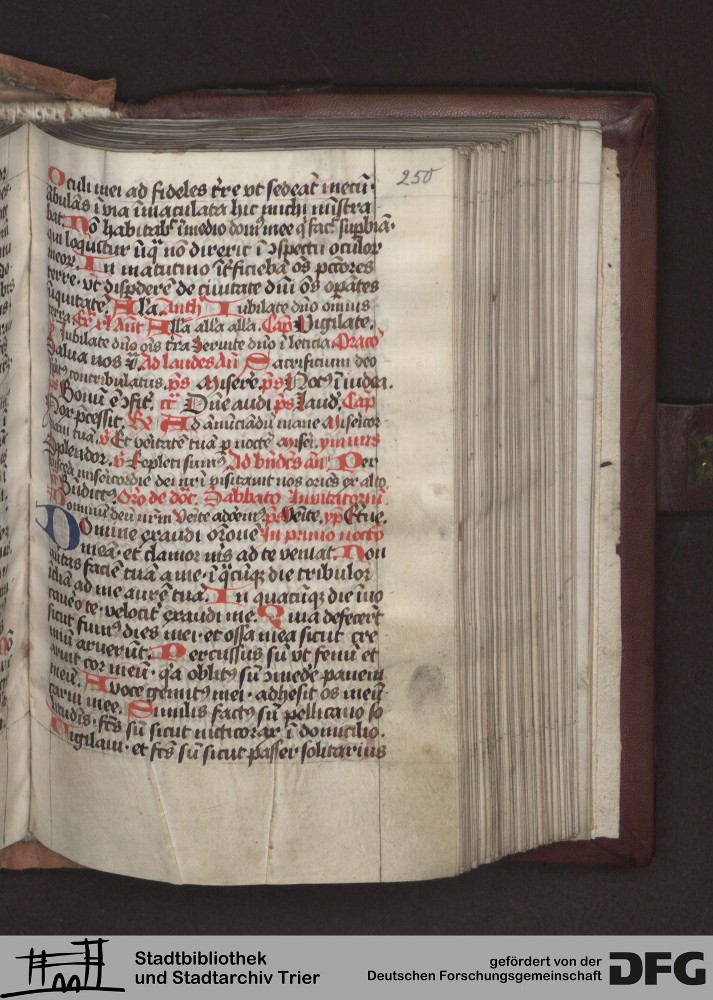 250
Oculi mei ad fideles tr̄re vt sedeāt mecū·
ābulās ī via īmaculata hic michi mīstra
bat· Nō habitabᵗ ī medio domꝰ mee q̄ facᵗ supbiā·
qui loquitur īiq̄ nō direxit ī ↄspectu oculoꝝ
meoꝝ. In matutino īt̄ficiebā ōs pctōres
terre· vt dispderē de ciuitate dn̄i ōs opātes
iniquitate. All'a. Anth' Iubilate dn̄o omnis
terra Ant' All'a all'a all'a. Cap Vigilate.
℣ Iubilate dn̄o oīs tr̄a Seruite dn̄o ī leticia Oracō
Salua nos Ad laudes An̄ Sacrificium deo
spūs contribulatus. ps Miserē. ps Notꝰ ī iudea.
ps Bonū ē ↄfit. Dn̄e audi ps Laud. Cap
Nox p̄cessit. Ad ānūciādū mane misericor
diam tuā. ℣ Et veritatē tuā p noctē ymnus
Splendor. ℣ Repleti sumꝰ Ad bn̄dcs an̄ Per
viscera misericordie dei nr̄i visitauit nos oriēs ex alto.
ps Bn̄dictꝰ. Oro de dōc. Sabbato Inuitatoriū.
Dominū deū nr̄m Venite adoremꝰ. ps Venite. yp
Domine exaudi oroneꝫ In primo noct̄o
meā· et clamor mīs ad te veniat. Non
auertas faciē tuā a me· ī q̄cūqꝫ die tribulor
īclīa ad me aurē tuā. In quacūqꝫ die īuo
cauero te· velocit̄ exaudi me. Quia defecerūt
sicut fumꝰ dies mei· et ossa mea sicut cre
miū aruerūt. Percussus sū vt fenū et
aruit cor meū· q̄a oblitꝰ sū ↄmede panem
meū. A voce gemitꝰ mei· adhesit os meū
carni mee. Similis factꝰ sū pellicano so
litudīs· fcꝰ sū sicut nicticorax ī domicilio.
Vigilaui· et fcꝰ sū sicut passer solitarius
Stadtbibliothek
und Stadtarchiv Trier
gefördert von der
Deutschen Forschungsgemeinschaft DFG